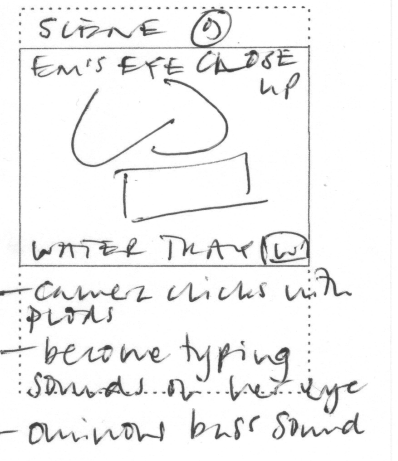 SCENE
EM'S EYE CLOSE
UP
WATER TRAY
- camera clicks with
prods
- become typing
sounds on her eye
- ominous bass sound